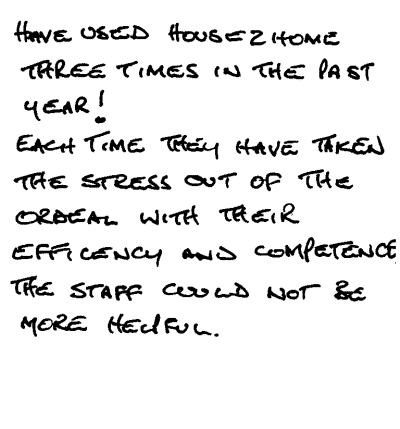 HAVE USED HOUSE2HOME
THREE TIMES IN THE PAST
YEAR!
EACH TIME THEY HAVE TAKEN
THE STRESS OUT OF THE
ORDEAL WITH THEIR
EFFICENCY AND COMPETENCE,
THE STAFF COULD NOT BE
MORE HELPFUL.